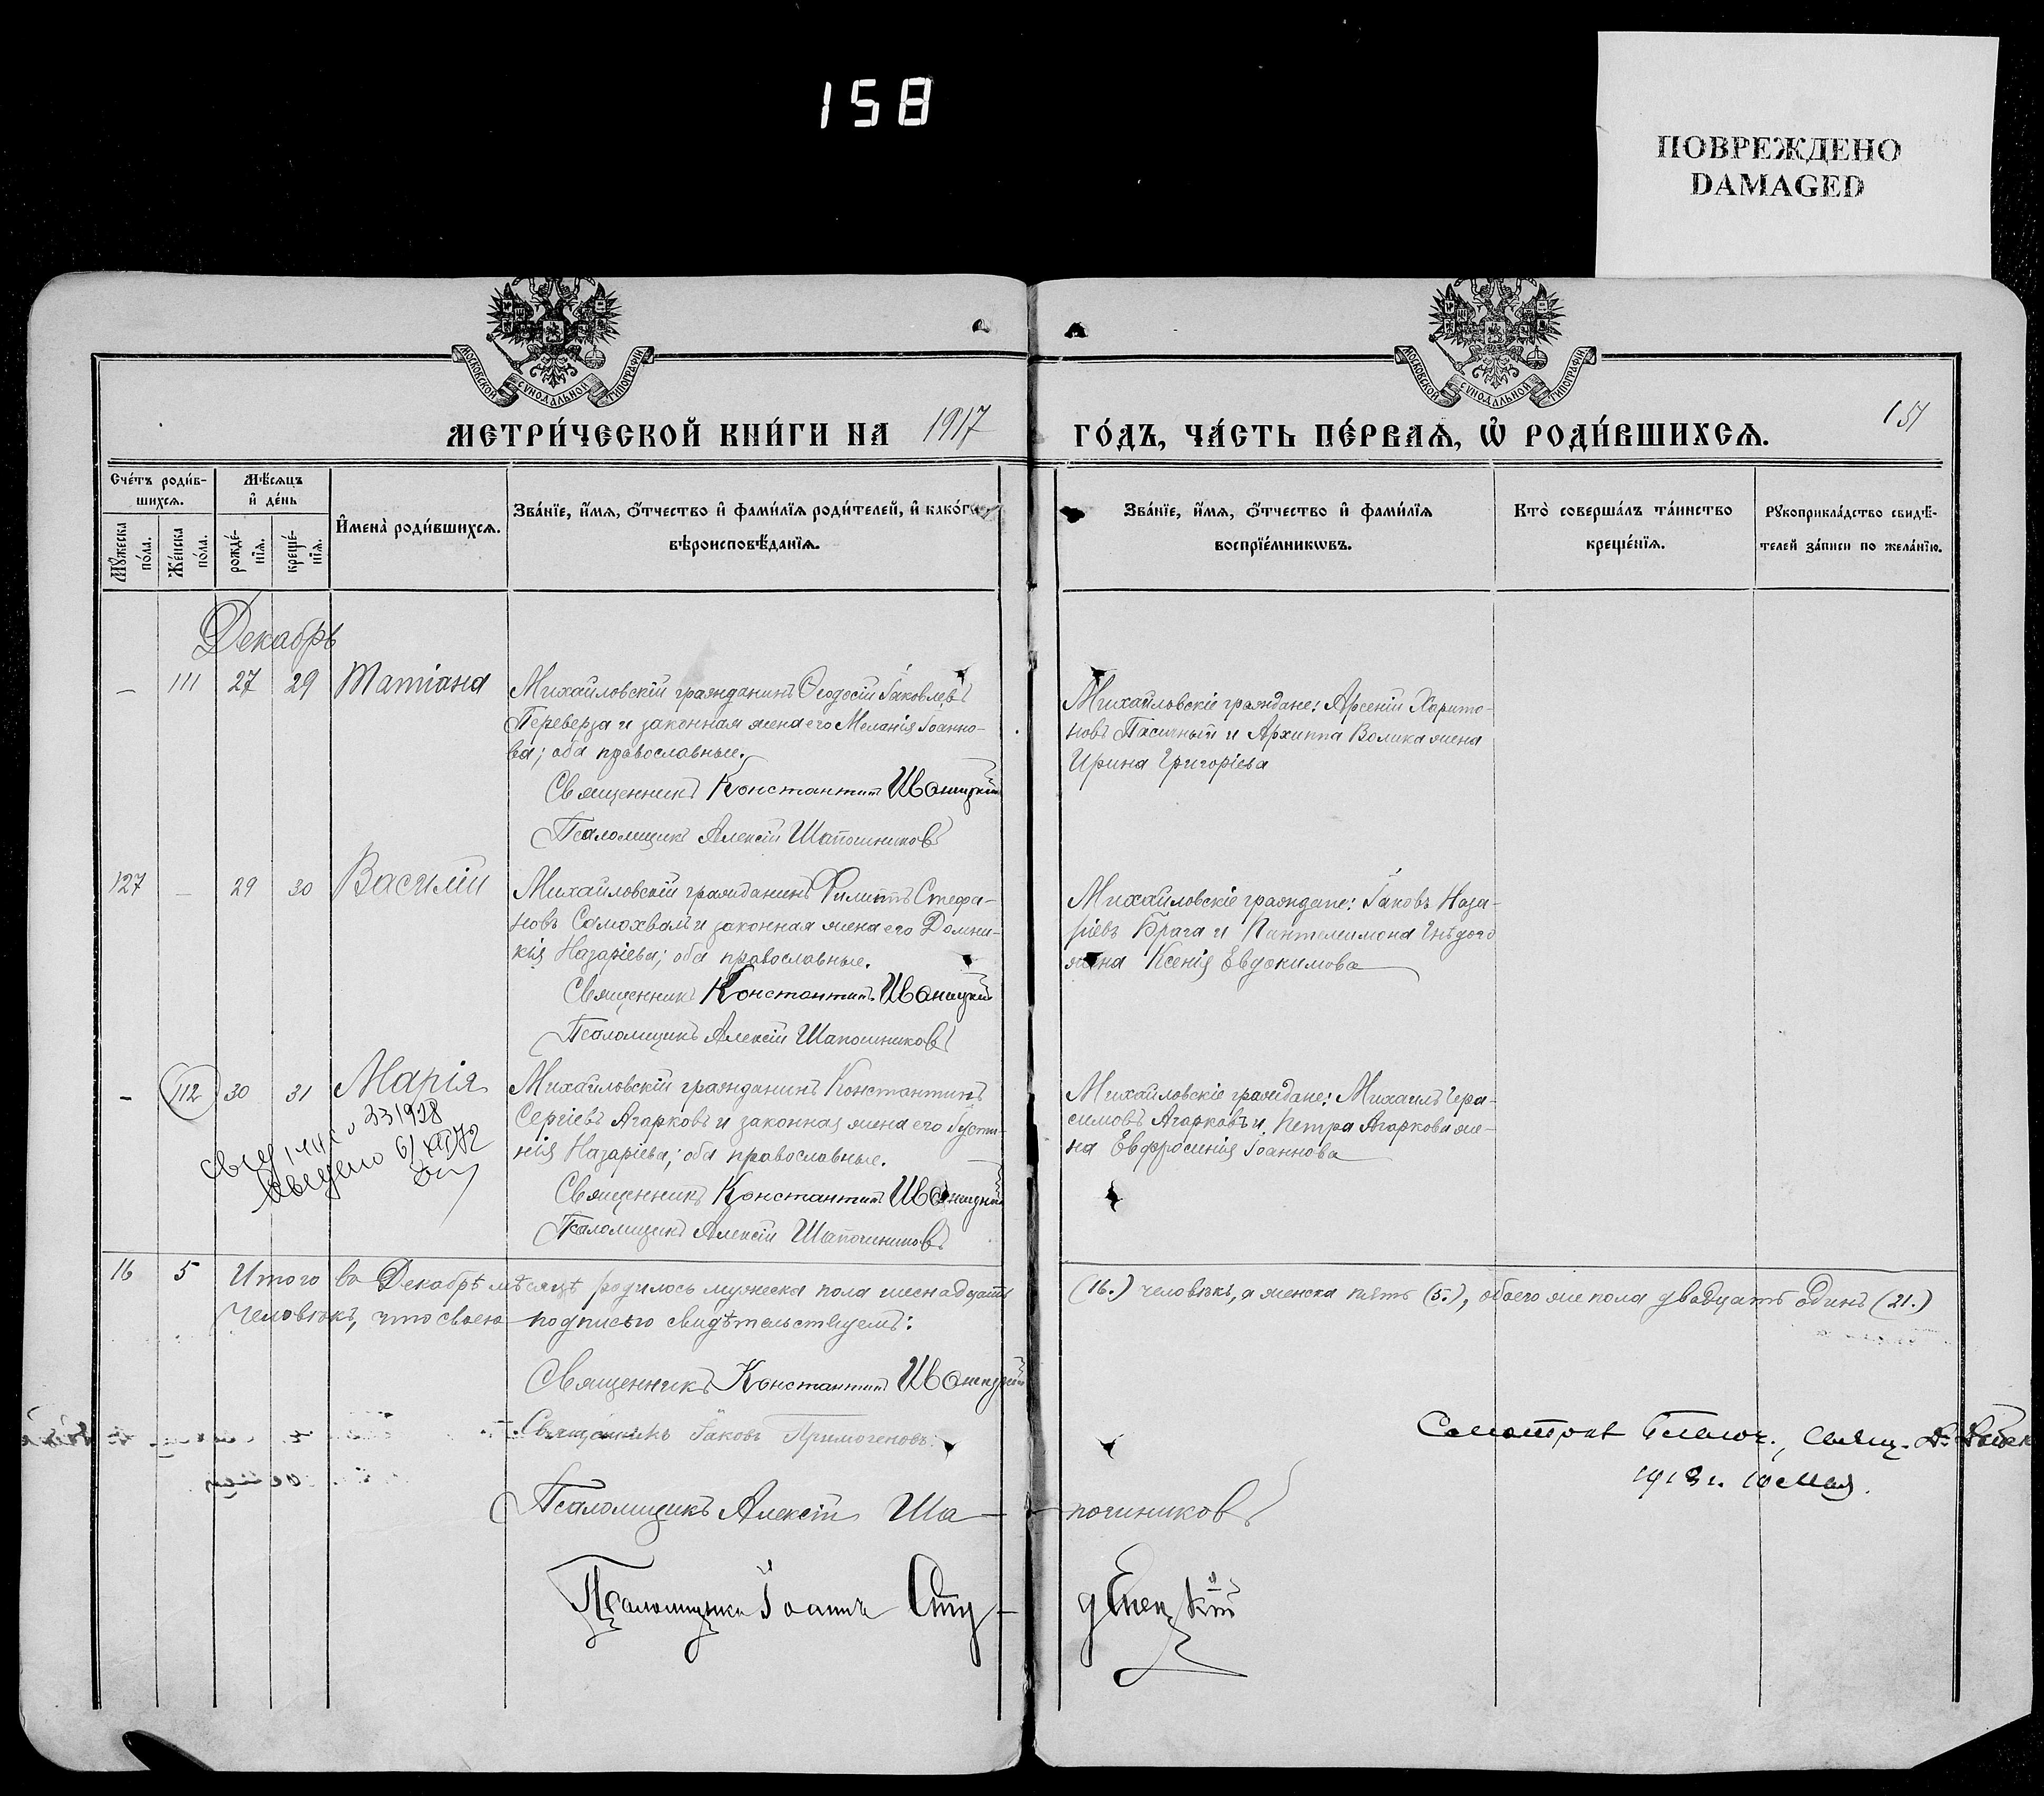 158
ПОВРЕЖДЕНО
DAMAGED
МОСКОВСКОЙ СѴНОДАЛЬНОЙ ТИПОГРАФІИ
МОСКОВСКОЙ СѴНОДАЛЬНОЙ ТИПОГРАФІИ
151
МЕТРИ́ЧЕСКОЙ КНИ́ГИ НА 1917 ГО́ДЪ, ЧА́СТЬ ПЕ́РВАѦ, Ѡ҆ РОДИ́ВШИХСѦ.
Сче́тъ роди́в-
шихсѧ.
Мꙋ́жеска по́ла.
Же́нска по́ла.
Мѣ́сѧцъ
и҆ де́нь
рожде́-нїѧ.
креще́-нїѧ.
И҆мена̀ роди́вшихсѧ.
Зва́нїе, и҆́мѧ, ѻ҆́тчество и҆ фами́лїѧ роди́телей, и҆ како́гѡ
вѣроисповѣ́данїѧ.
Зва́нїе, и҆́мѧ, ѻ҆́тчество и҆ фами́лїѧ
воспрїе́мникѡвъ.
Кто̀ соверша́лъ та́инство
креще́нїѧ.
Рꙋкоприкла́дство свидѣ́-
телей за́писи по жела́нїю.
Декабрь
— 111 27 29 Татіана
Михайловскій гражданинъ Ѳеодосій Іаковлевъ
Переверза и законная жена его Меланія Іоанно-
ва; оба православные.
Священникъ Константинъ Иваницкій
Псаломщикъ Алексій Шапошниковъ
Михайловскіе граждане: Арсеній Харито-
новъ Пасичный и Архиппа Волика жена
Ирина Григоріева
127 — 29 30 Василій
Михайловскій гражданинъ Филиппъ Стефа-
новъ Самохвалъ и законная жена его Домни-
кія Назаріева; оба православные.
Священникъ Константинъ Иваницкій
Псаломщикъ Алексій Шапошниковъ
Михайловскіе граждане: Іаковъ Наза-
ріевъ Брага и Пантелеимона Гнѣдого
жена Ксенія Евдокимова
— 112 30 31 Марія
Михайловскій гражданинъ Константинъ
Сергіевъ Агарковъ и законная жена его Іусти-
нія Назаріева; оба православные.
Священникъ Константинъ Иваницкій
Псаломщикъ Алексій Шапошниковъ
Михайловскіе граждане: Михаилъ Гера-
симовъ Агарковъ и Петра Агаркова же-
на Евфросинія Іоаннова
16 5 Итого въ Декабрѣ мѣсяцѣ родилось мужеска пола шестнадцать (16.) человѣкъ, а женска пять (5.), обоего же пола двадцать одинъ (21.)
человѣкъ, что своею подписью свидѣтельствуемъ:
Священникъ Константинъ Иваницкій
Священникъ Іаковъ Примогеновъ
Псаломщикъ Алексій Шапошниковъ
Псаломщикъ Іоаннъ
10 мая.